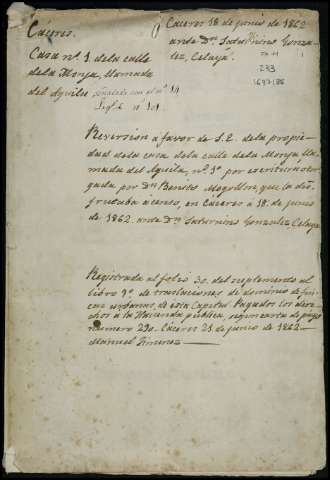 Cáceres.
Casa nº. 1 de la calle
de la Monja, llamada
del Aguila señalada con el nº 14
Leg.º 6 nº 101.
Cáceres 18 de junio de 1862
ante Dn. Saturnino Gonza-
lez, Celaya.
233
1697/88
Reversion a favor de S. E. de la propie-
dad de la casa de la calle de la Monja lla-
mada del Aguila, nº. 1º por escritura otor-
gada por Dn. Benito Mogollon, que la dis-
frutaba a censo, en Cáceres á 18. de junio
de 1862. ante Dn. Saturnino Gonzalez Celaya
Registrada al folio 30. del suplemento al
libro 9º. de traslaciones de dominio de fin-
cas urbanas, de esta Capital. Pagados los dere-
chos a la Hacienda publica, segun carta de pago
numero 290. Cáceres 21 de junio de 1862—
Manuel Jimenez—